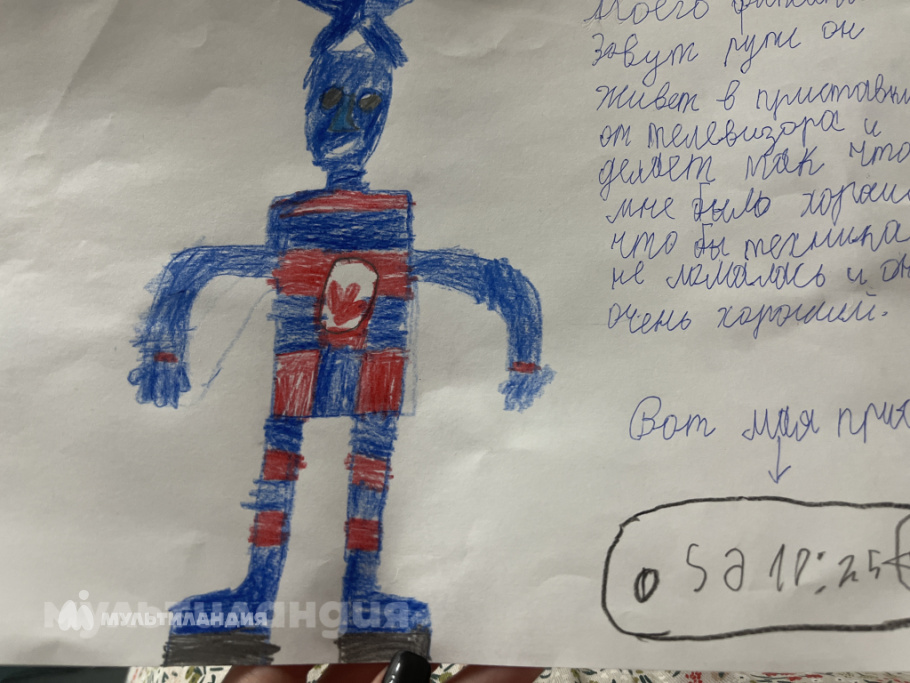 Моего
Зовут рупс он
живет в приставк
от телевизора и
делает так что
мне было хорош
что бы техника
не ломалась и он
очень хороший.
Вот моя прис
МУЛЬТИЛАНДИЯ
мультиландия